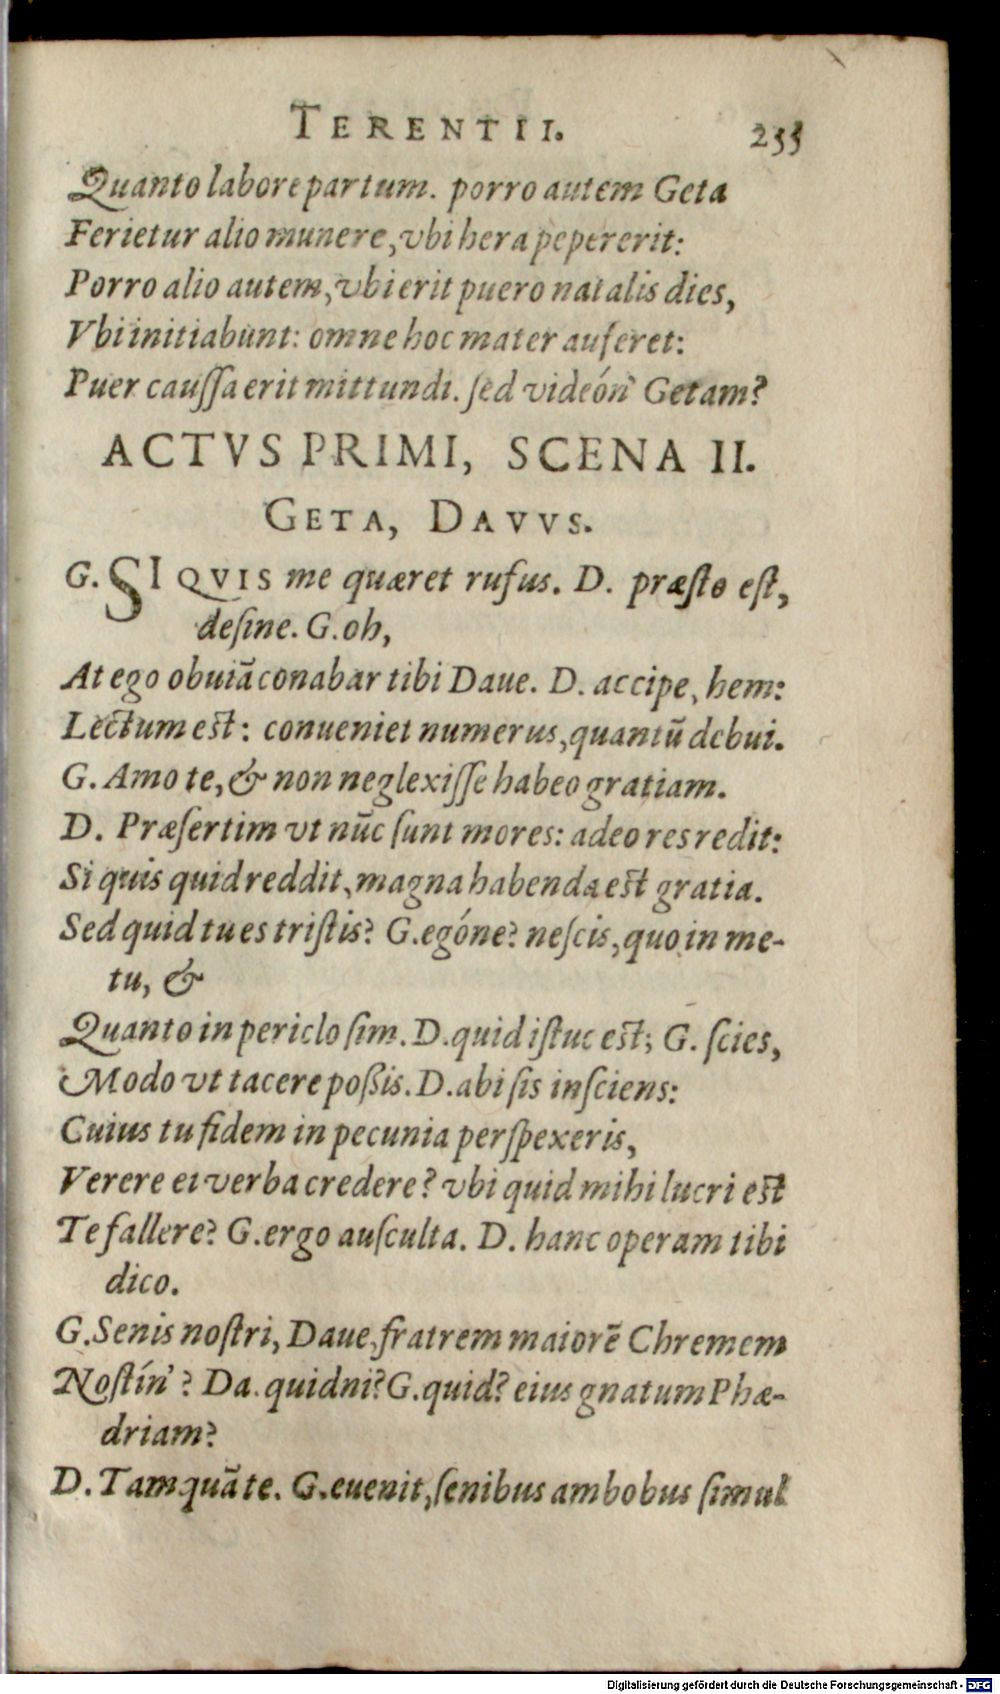 TERENTII. 233
Quanto labore partum. porro autem Geta
Ferietur alio munere, vbi hera pepererit:
Porro alio autem, vbi erit puero natalis dies,
Vbi initiabunt: omne hoc mater auferet:
Puer cauſſa erit mittundi. ſed videón' Getam?
ACTVS PRIMI, SCENA II.
GETA, DAVVS.
G. SI QVIS me quæret rufus. D. præſto eſt,
deſine. G. oh,
At ego obuiā conabar tibi Daue. D. accipe, hem:
Lectum est: conueniet numerus, quantū debui.
G. Amo te, & non neglexiſſe habeo gratiam.
D. Præſertim vt nūc ſunt mores: adeo res redit:
Si quis quid reddit, magna habenda est gratia.
Sed quid tu es triſtis? G. egóne? neſcis, quo in me-
tu, &
Quanto in periclo ſim. D. quid iſtuc est; G. ſcies,
Modo vt tacere poßis. D. abi ſis inſciens:
Cuius tu fidem in pecunia perſpexeris,
Verere ei verba credere? vbi quid mihi lucri est
Te fallere? G. ergo auſculta. D. hanc operam tibi
dico.
G. Senis noſtri, Daue, fratrem maiorē Chremem
Noſtín'? Da. quidni? G. quid? eius gnatum Phæ-
driam?
D. Tam quā te. G. euenit, ſenibus ambobus ſimul
Digitalisierung gefördert durch die Deutsche Forschungsgemeinschaft - DFG